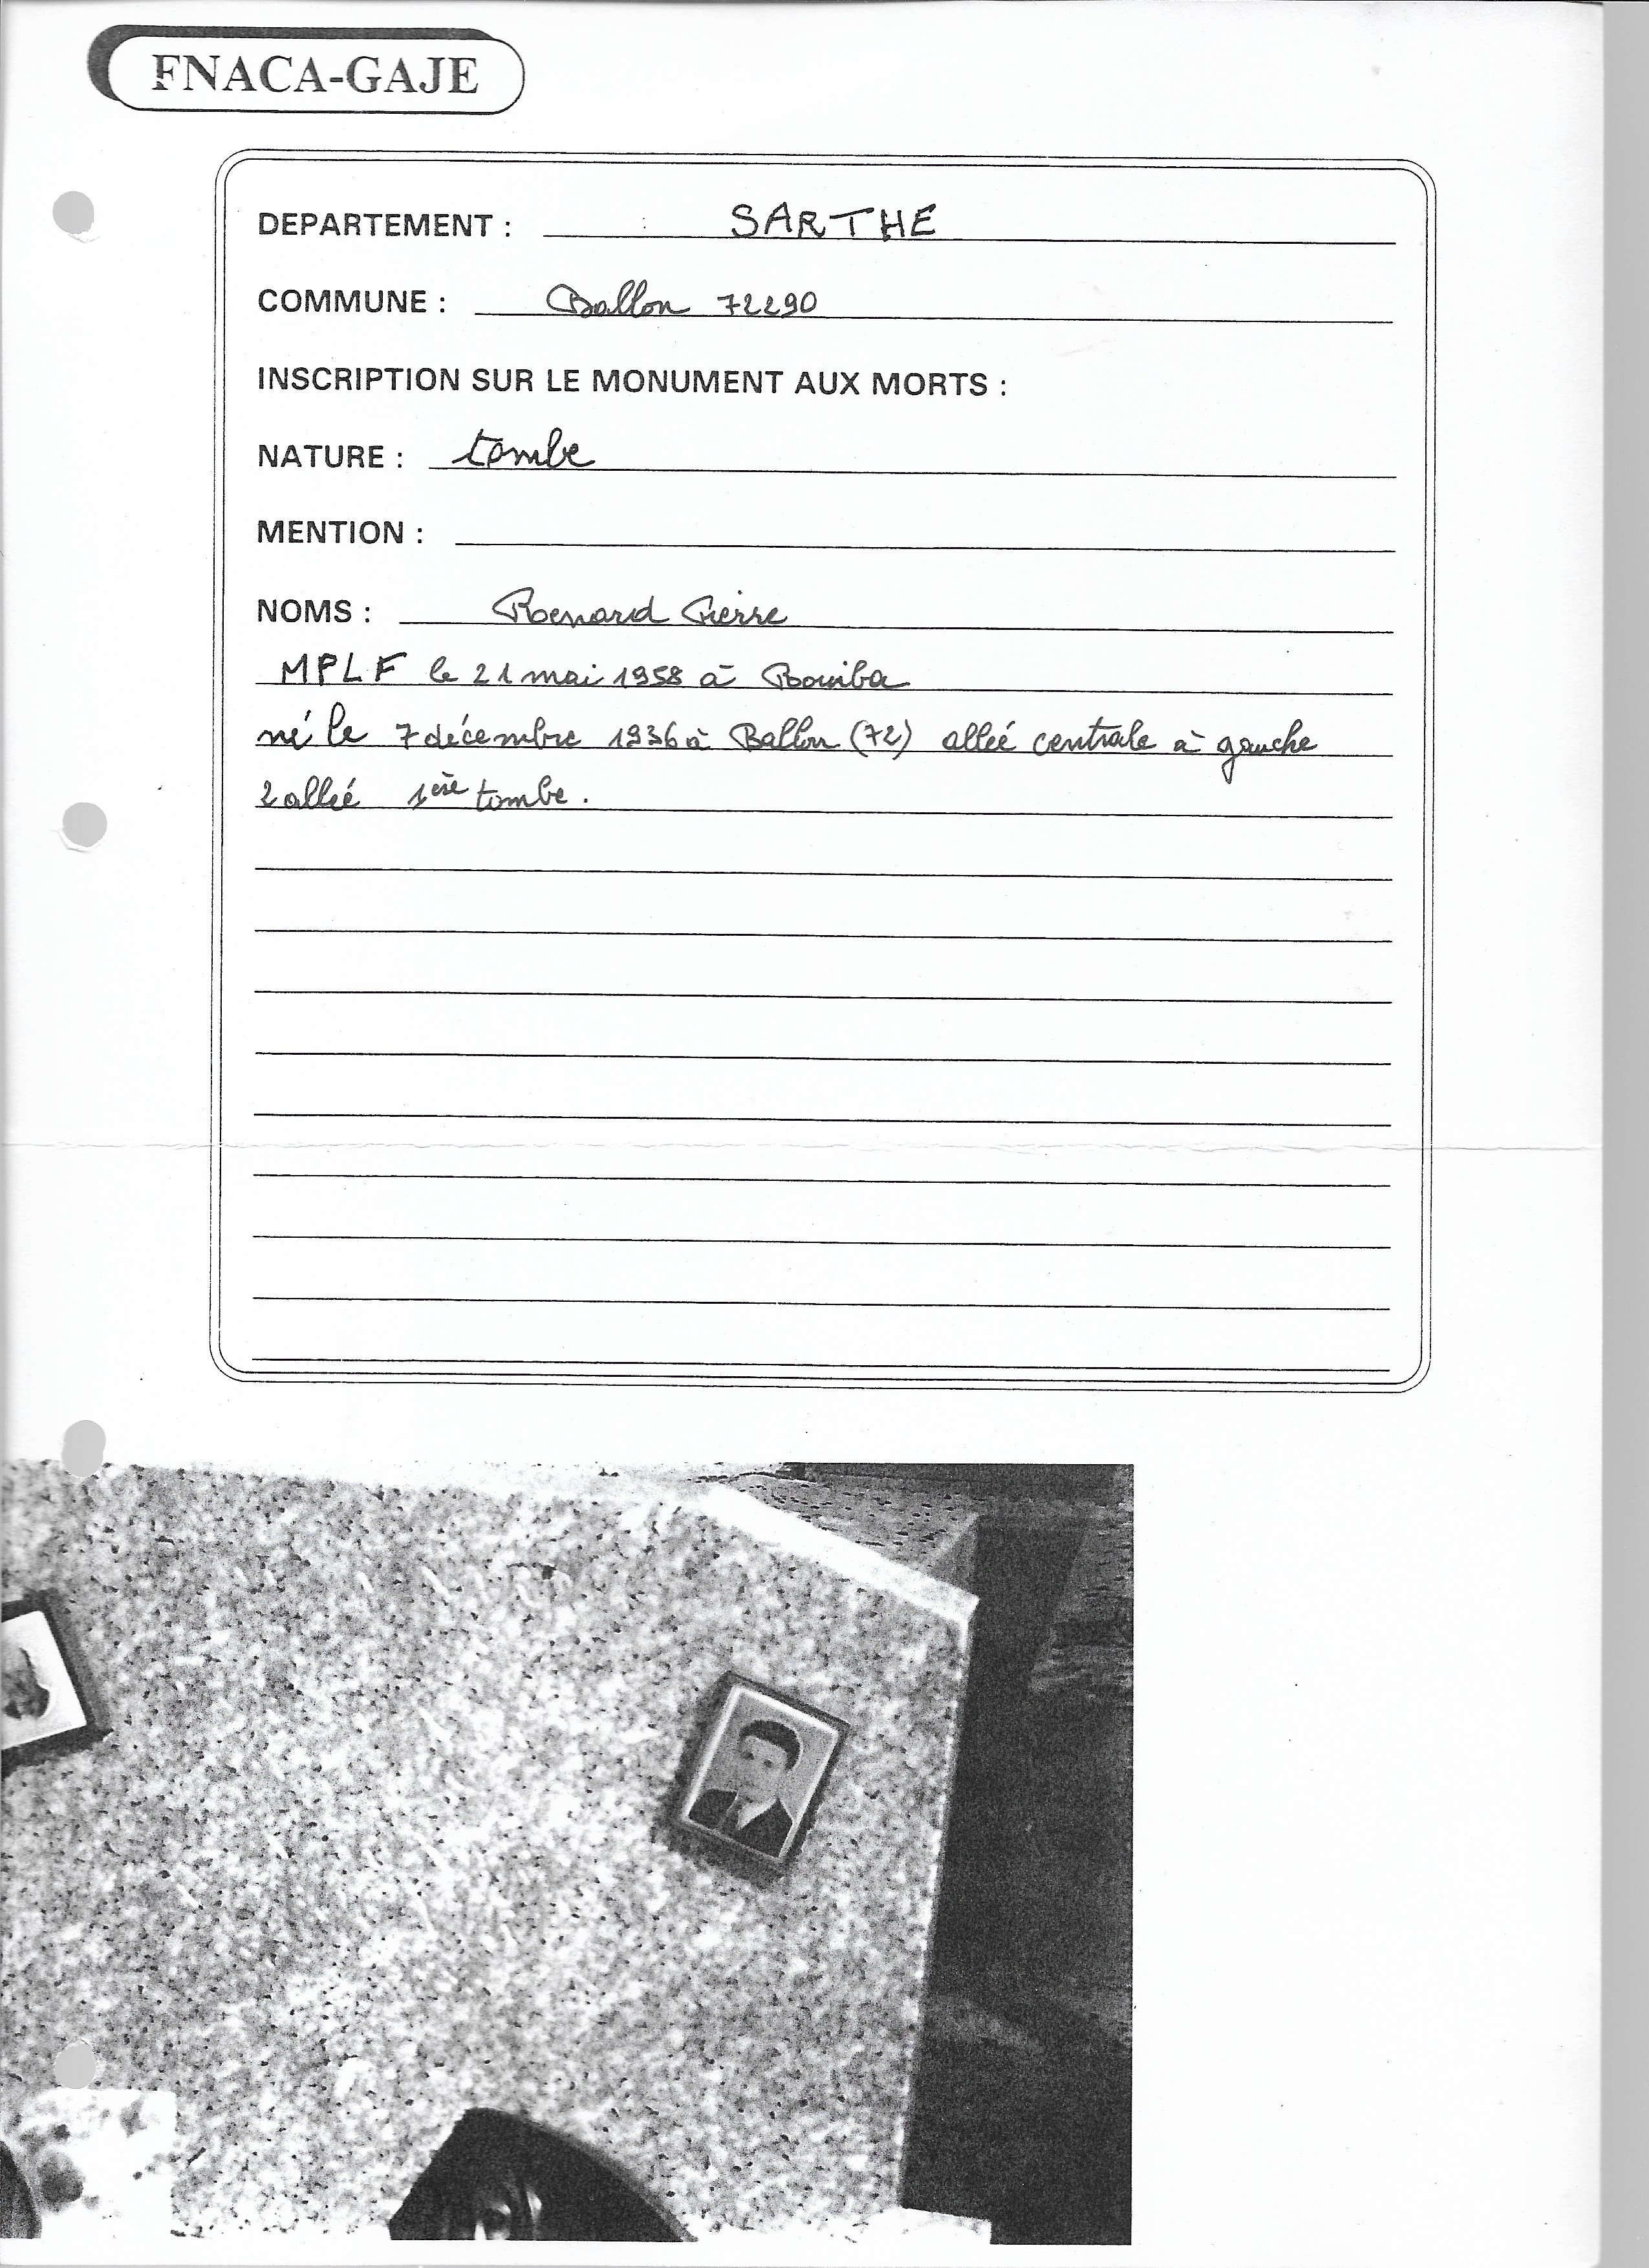 FNACA-GAJE
DEPARTEMENT : SARTHE
COMMUNE : Ballon 72290
INSCRIPTION SUR LE MONUMENT AUX MORTS :
NATURE : tombe
MENTION :
NOMS : Pierre
MPLF le 21 mai 1958 à
né le 7 décembre 1936 à Ballon (72) alleé centrale à gauche
2 alleé 1ère tombe.